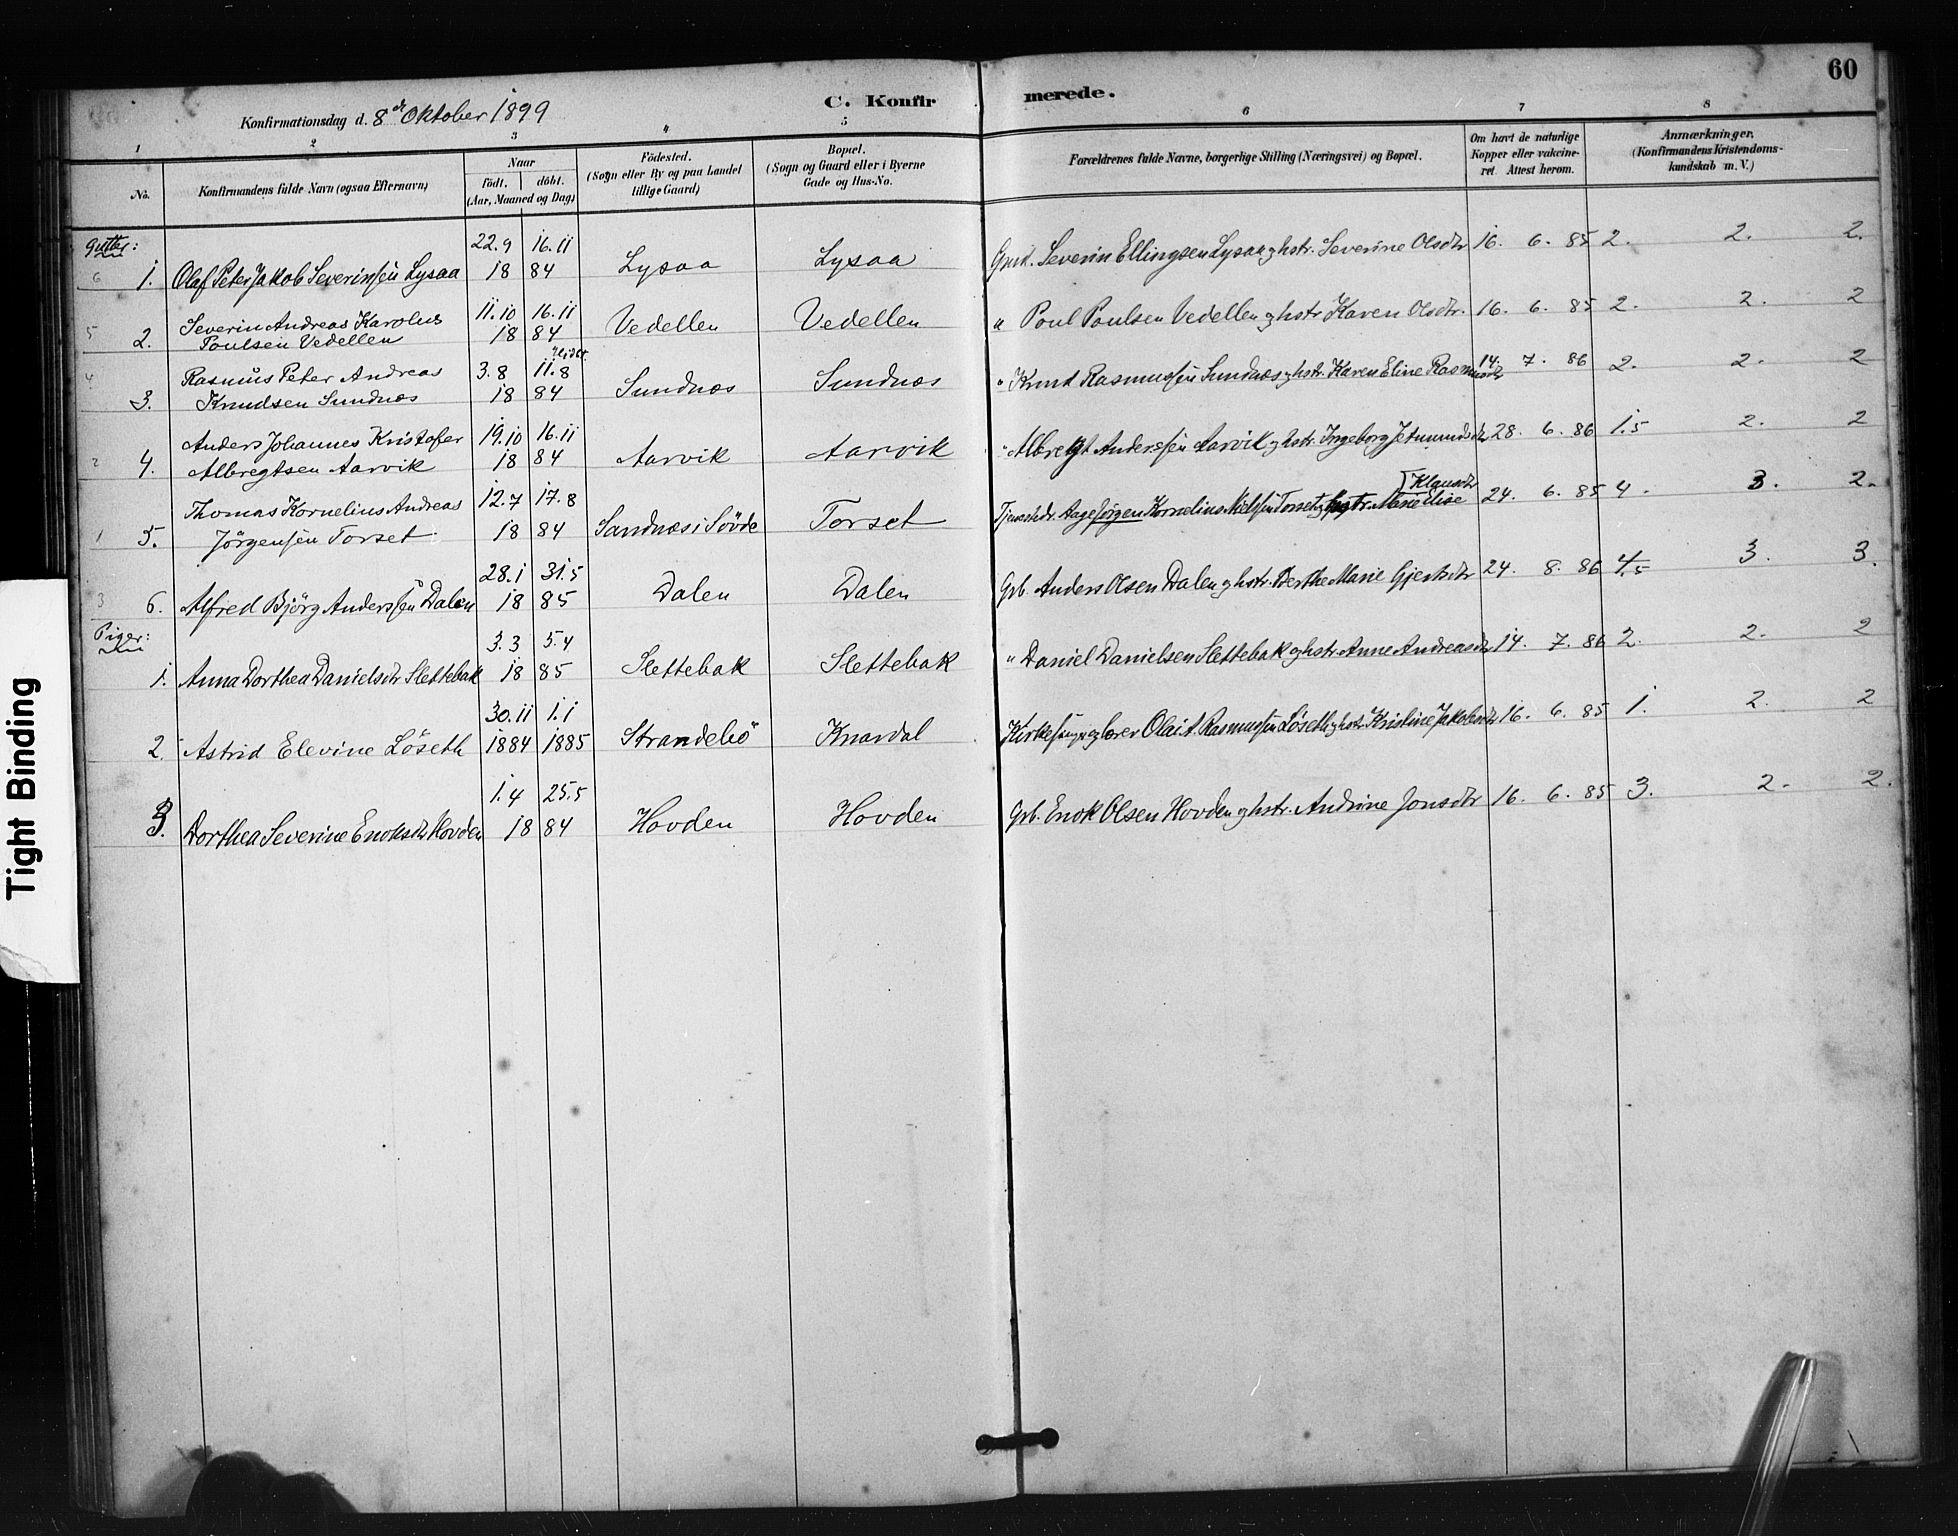 60
Konfirmationsdag d. 8de Oktober 1899
C. Konfirmerede.
1 2 3 " 5 6 7 8
No.
Konfirmandens fulde Navn (ogsaa Efternavn)
Naar
födt. döbt.
(Aar, Maaned og Dag)
Födested.
(Sogn eller By og paa Landet
tillige Gaard)
Bopæl.
(Sogn og Gaard eller i Byerne
Gade og Hus-No.
Forældrenes fulde Navne, borgerlige Stilling (Næringsvei) og Bopæl.
Om havt de naturlige
Kopper eller vakcine-
ret. Attest herom.
Anmærkninger.
(Konfirmandens Kristendoms-
kundskab m. V.)
Gutter:
6 1. Olaf Peter Jakob Severinsen Lysaa 22.9 1884 16.11 Lysaa Lysaa Grnd. Severin Ellingsen Lysaa og hstr. Severine Olsdtr 16. 6. 85 2. 2. 2.
5 2. Severin Andreas Karolus
Poulsen Vedellen 11.10 1884 16.11 Vedellen Vedellen " Poul Poulsen Vedellen og hstr Karen Olsdtr. 16. 6. 85 2. 2. 2
4 3. Rasmus Peter Andreas
Knudsen Sundnæs 3.8 1884 11.8 Sundnæs Sundnæs " Knud Rasmussen Sundnæs og hstr. Karen Eline Rasmusdtr 14. 7. 86 2. 2. 2
2 4. Anders Johannes Kristofer
Albregtsen Aarvik 19.10 1884 16.11 Aarvik Aarvik " Albregt Anderssen Aarvik og hstr. Ingeborg Jetmundsdtr 28. 6. 86 1.5 2. 2
1 5. Thomas Kornelius Andreas
Jörgensen Torset 12.7 1884 17.8 Sandnæs i Sövde Torset Aage Jörgen Kornelius Nielsen Torset og hstr. Marie Elise Klausdtr 24. 6. 85 4. 3. 2.
3 6. Alfred Björg Anderssen Dalen 28.1 1885 31.5 Dalen Dalen Grb. Anders Olsen Dalen og hstr. Berthe Marie Gjertsdtr 24. 8. 86 4.5 3. 3.
Piger:
1. Anna Dorthea Danielsdtr Slettebak 3.3 1885 5.4 Slettebak Slettebak " Daniel Danielsen Slettebak og hstr. Anne Andreasdtr 14. 7. 86 2. 2. 2
2. Astrid Elevine Löseth 30.11 1884 1.1 1885 Strandebö Knardal Kirkesanger og lærer Olai A. Rasmussen Löseth og hstr. Kristine Jakobsdtr 16. 6. 85 1. 2. 2
3. Dorthea Severine Enoksdtr Hovden 1.4 1884 25.5 Hovden Hovden Grb. Enok Olsen Hovden og hstr. Andrine Jonsdtr 16. 6. 85 3. 2. 2.
Tight Binding